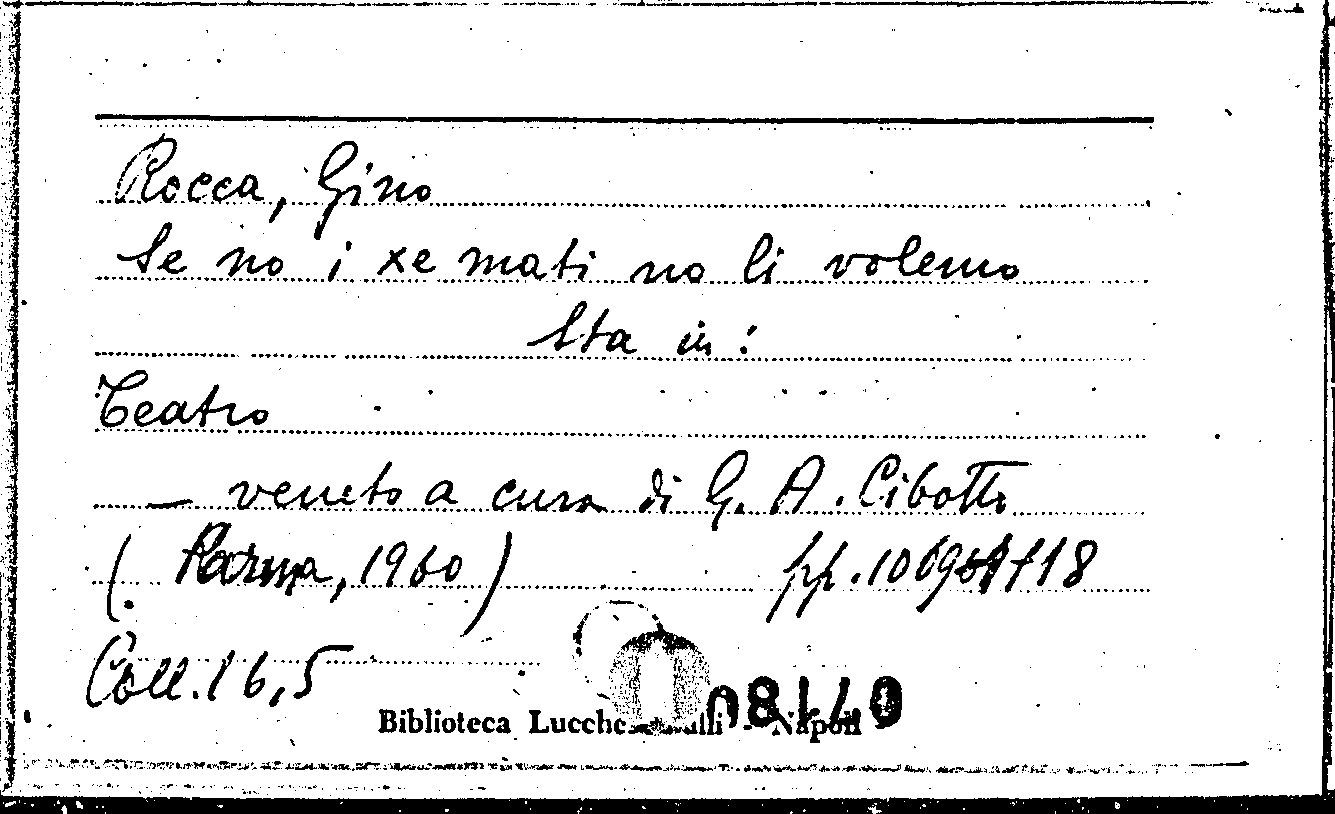 Rocca, Gino
Se no i xe mati no li volemo
Sta in:
Teatro
— veneto a cura di G. A. Cibotto
(Parma, 1960) pp.
Coll. 16,5
Biblioteca Napoli